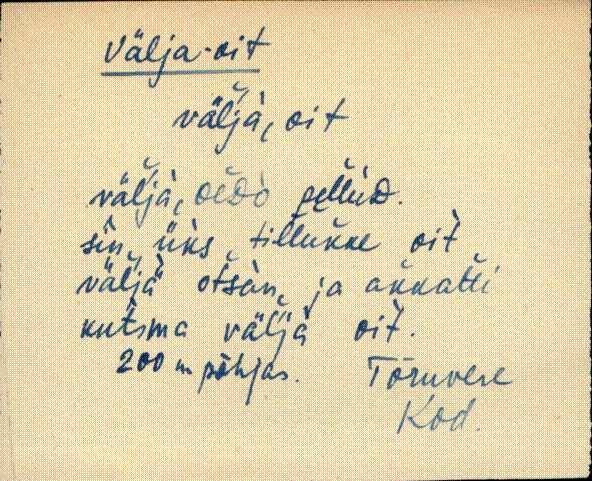 Välja-oit
väljà, oit
väljà, oeᴅò pellùᴅ.
sìn, üks, tillukke oìt
väljä otsàn, ja akkatti
kutsma väljà oìt.
200 m põhjas. Tõruvere
Kod.